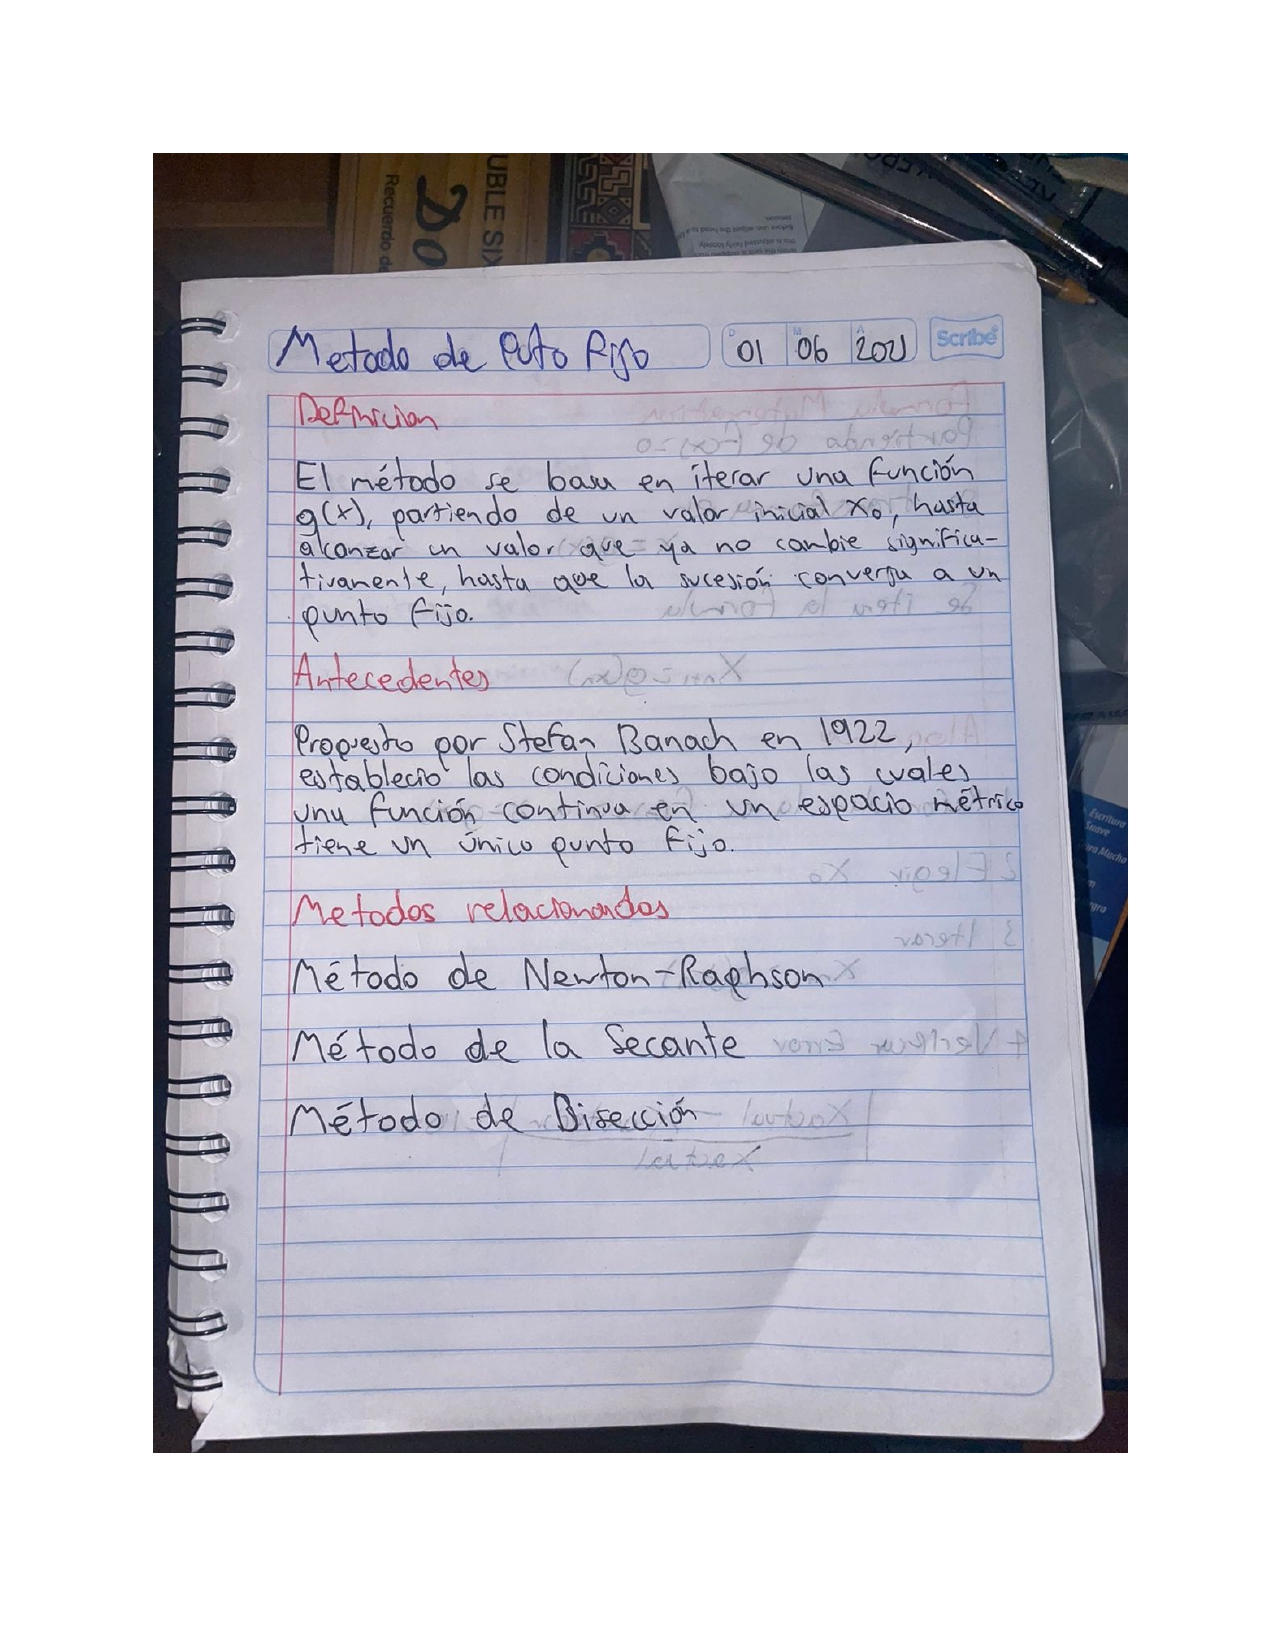 UBLE SIX
Do
Recuerdo de
Metodo de Puto Fijo
D 01 M 06 A 2021
Scribe
Definicion
El método se basa en iterar una función
g(x), partiendo de un valor inicial x₀, hasta
alcanzar un valor que ya no cambie significa-
tivamente, hasta que la sucesión converja a un
punto fijo.
Antecedentes
Propuesto por Stefan Banach en 1922,
establecio las condiciones bajo las cuales
una función continua en un espacio métrico
tiene un único punto fijo.
Metodos relacionados
Método de Newton-Raphson
Método de la Secante
Método de Bisección
Escritura
Suave